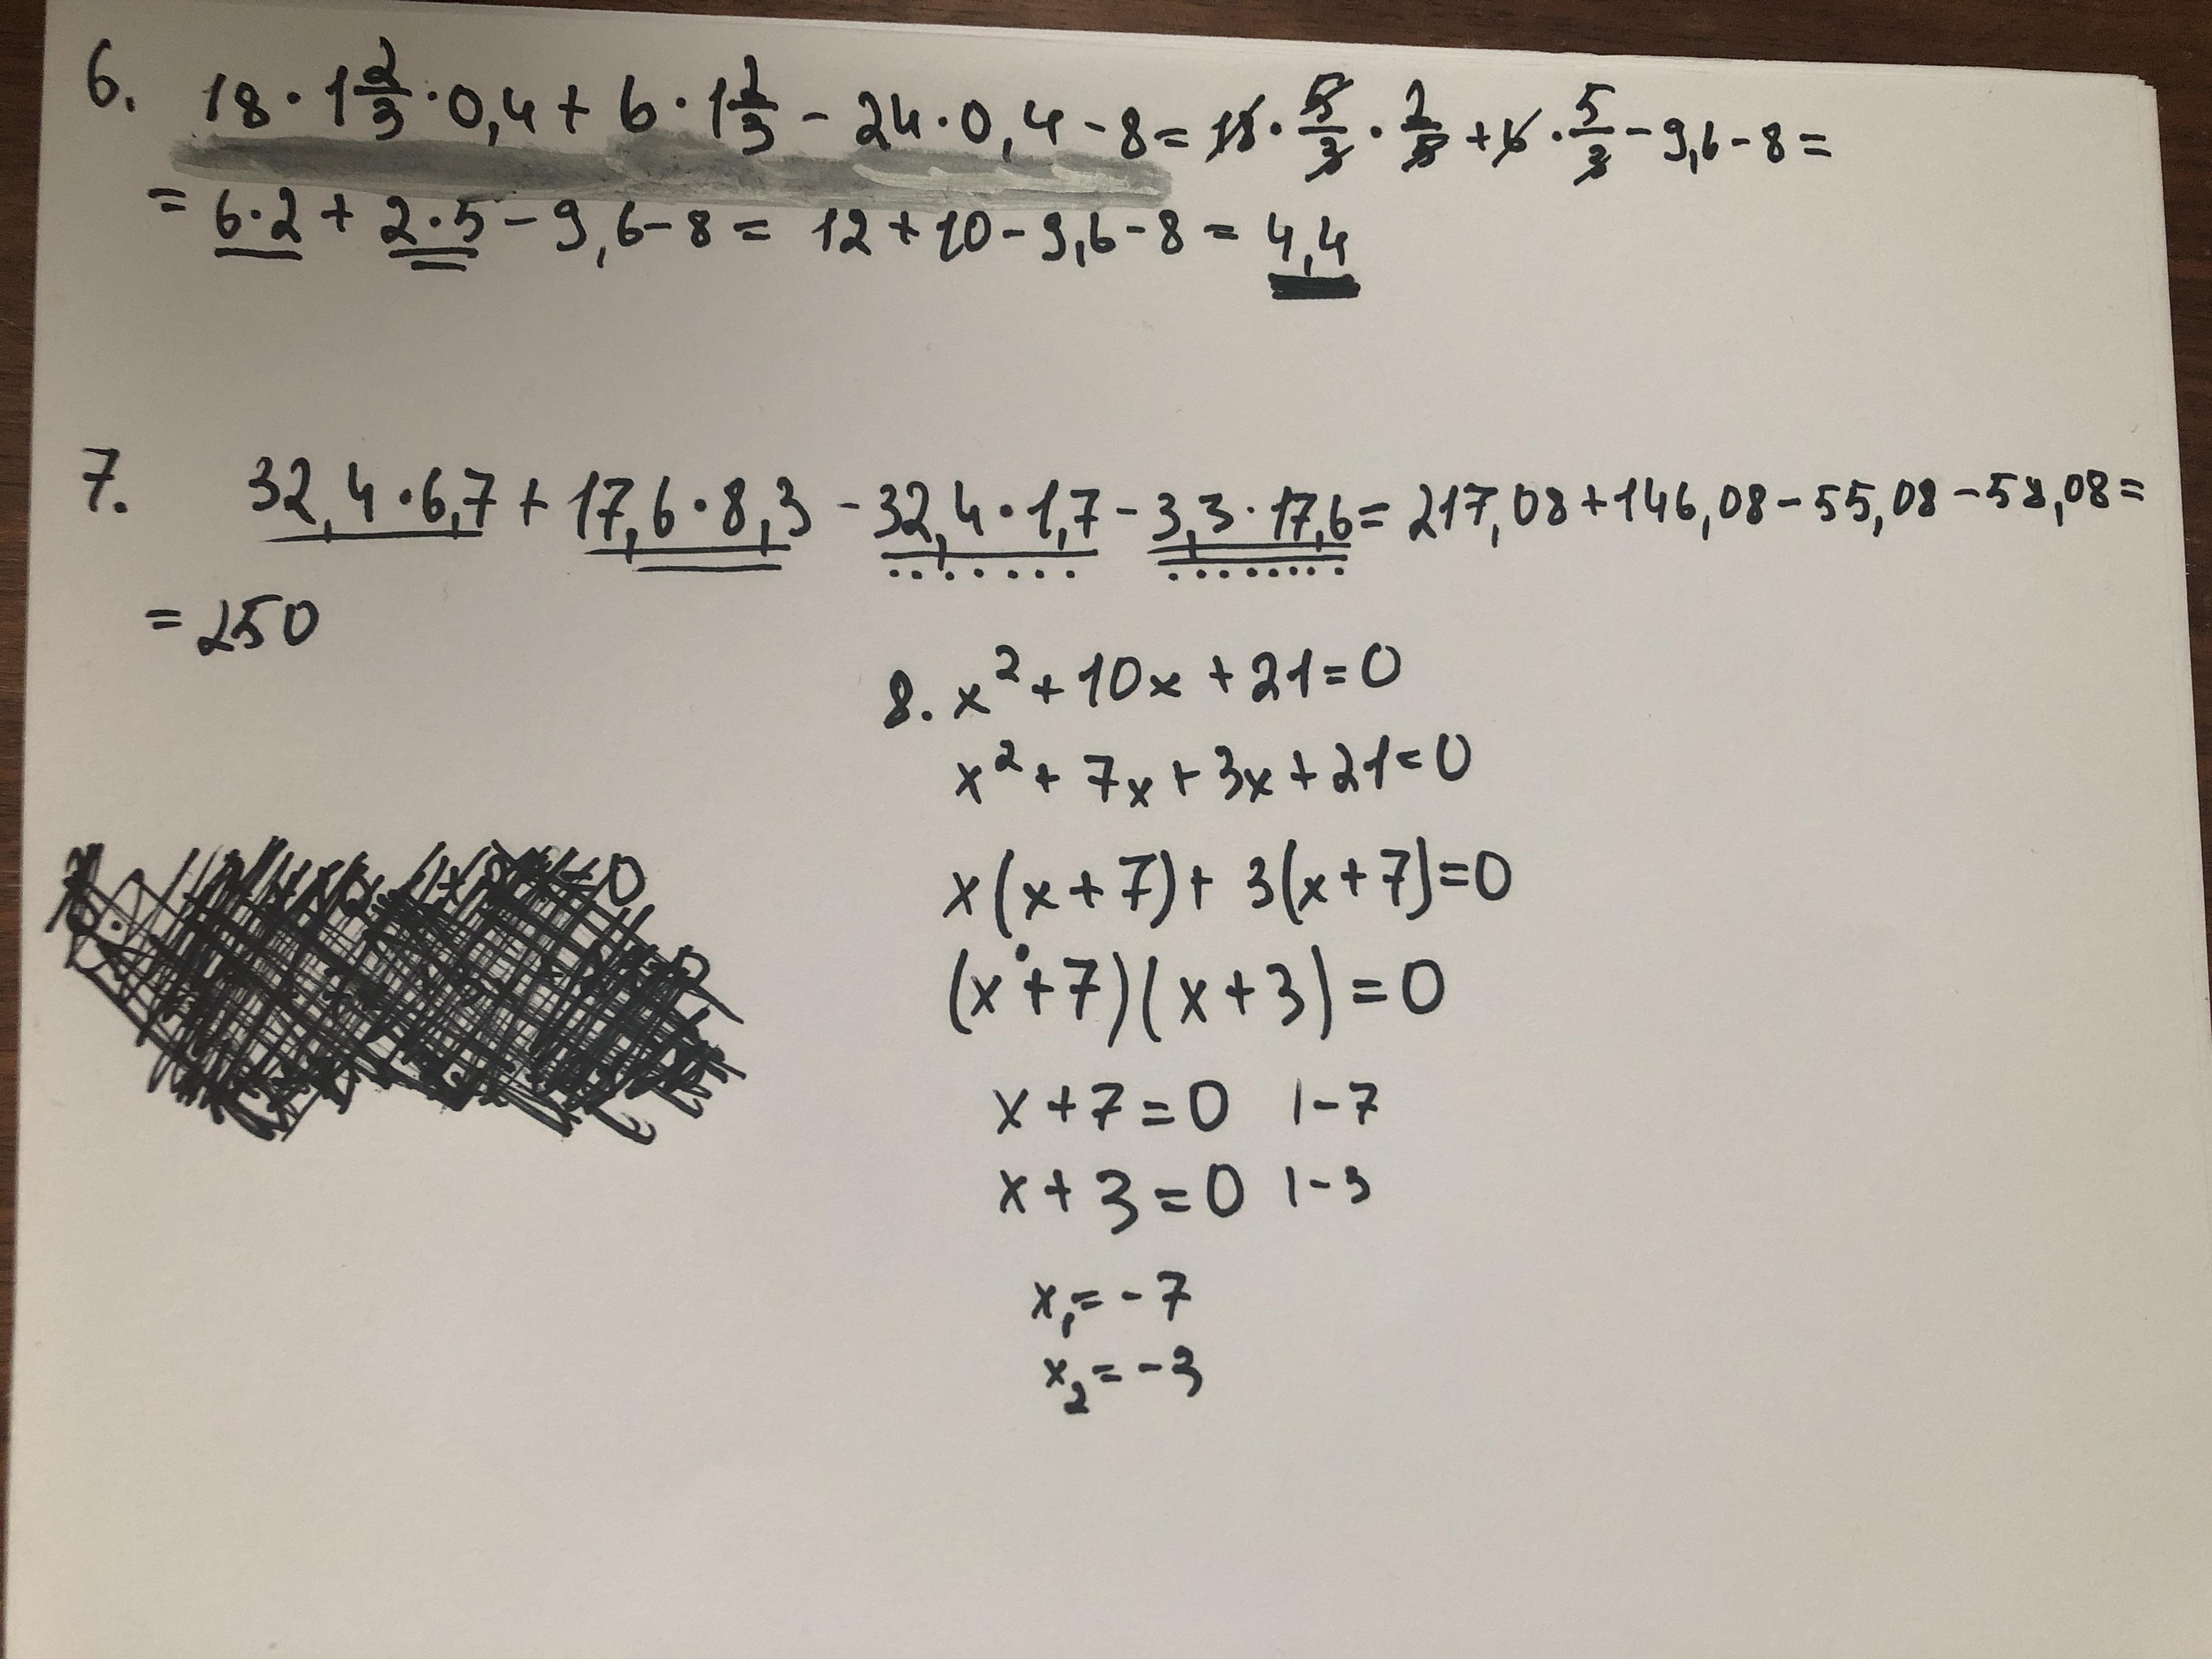 6. 18 · 1 2/3 · 0,4 + 6 · 1 2/3 - 24 · 0,4 - 8 = 18 · 5/3 · 2/5 + 6 · 5/3 - 9,6 - 8 =
= 6·2 + 2·5 - 9,6 - 8 = 12 + 10 - 9,6 - 8 = 4,4
7. 32,4 · 6,7 + 17,6 · 8,3 - 32,4 · 1,7 - 3,3 · 17,6 = 217,08 + 146,08 - 55,08 - 58,08 =
= 250
8. x² + 10x + 21 = 0
x² + 7x + 3x + 21 = 0
x(x + 7) + 3(x + 7) = 0
(x + 7)(x + 3) = 0
x + 7 = 0 | - 7
x + 3 = 0 | - 3
x₁ = - 7
x₂ = - 3